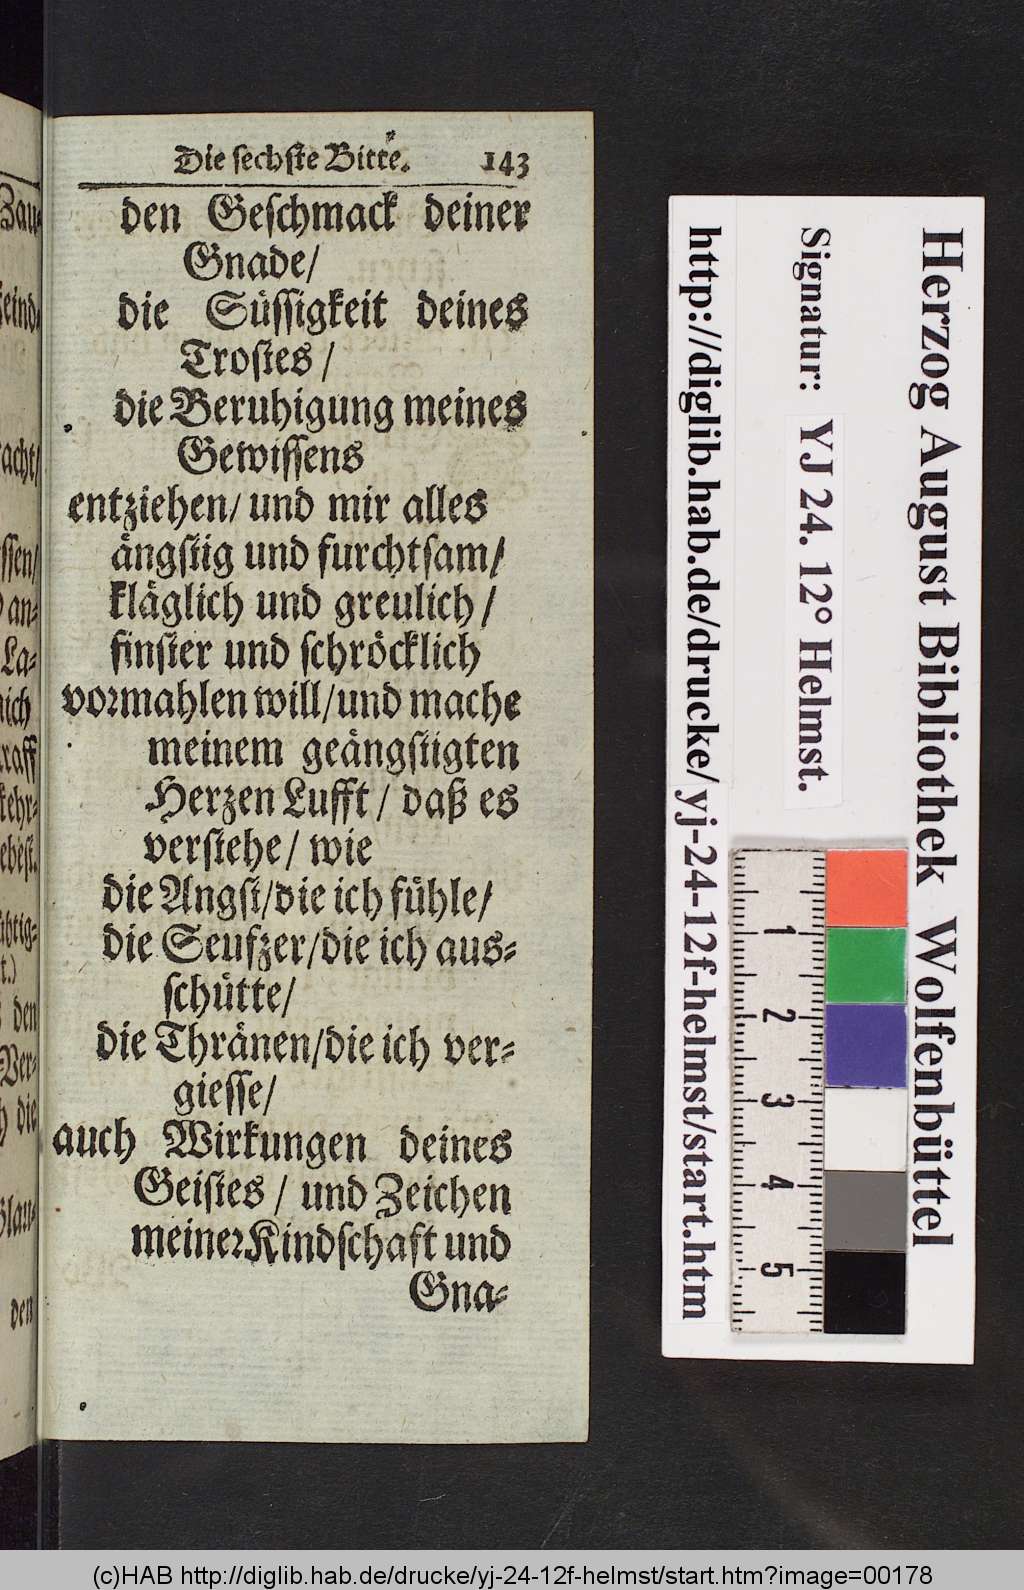 Die sechste Bitte. 143
den Geschmack deiner
Gnade/
die Süssigkeit deines
Trostes /
die Beruhigung meines
Gewissens
entziehen/ und mir alles
ängstig und furchtsam/
kläglich und greulich /
finster und schröcklich
vormahlen will/und mache
meinem geängstigten
Herzen Lufft / daß es
verstehe/ wie
die Angst/die ich fühle/
die Seufzer/die ich aus-
schütte/
die Thränen/die ich ver-
giesse/
auch Wirkungen deines
Geistes / und Zeichen
meiner Kindschaft und
Gna-
Herzog August Bibliothek Wolfenbüttel
Signatur: YJ 24. 12° Helmst.
http://diglib.hab.de/drucke/yj-24-12f-helmst/start.htm
1
2
3
4
5
(c)HAB http://diglib.hab.de/drucke/yj-24-12f-helmst/start.htm?image=00178